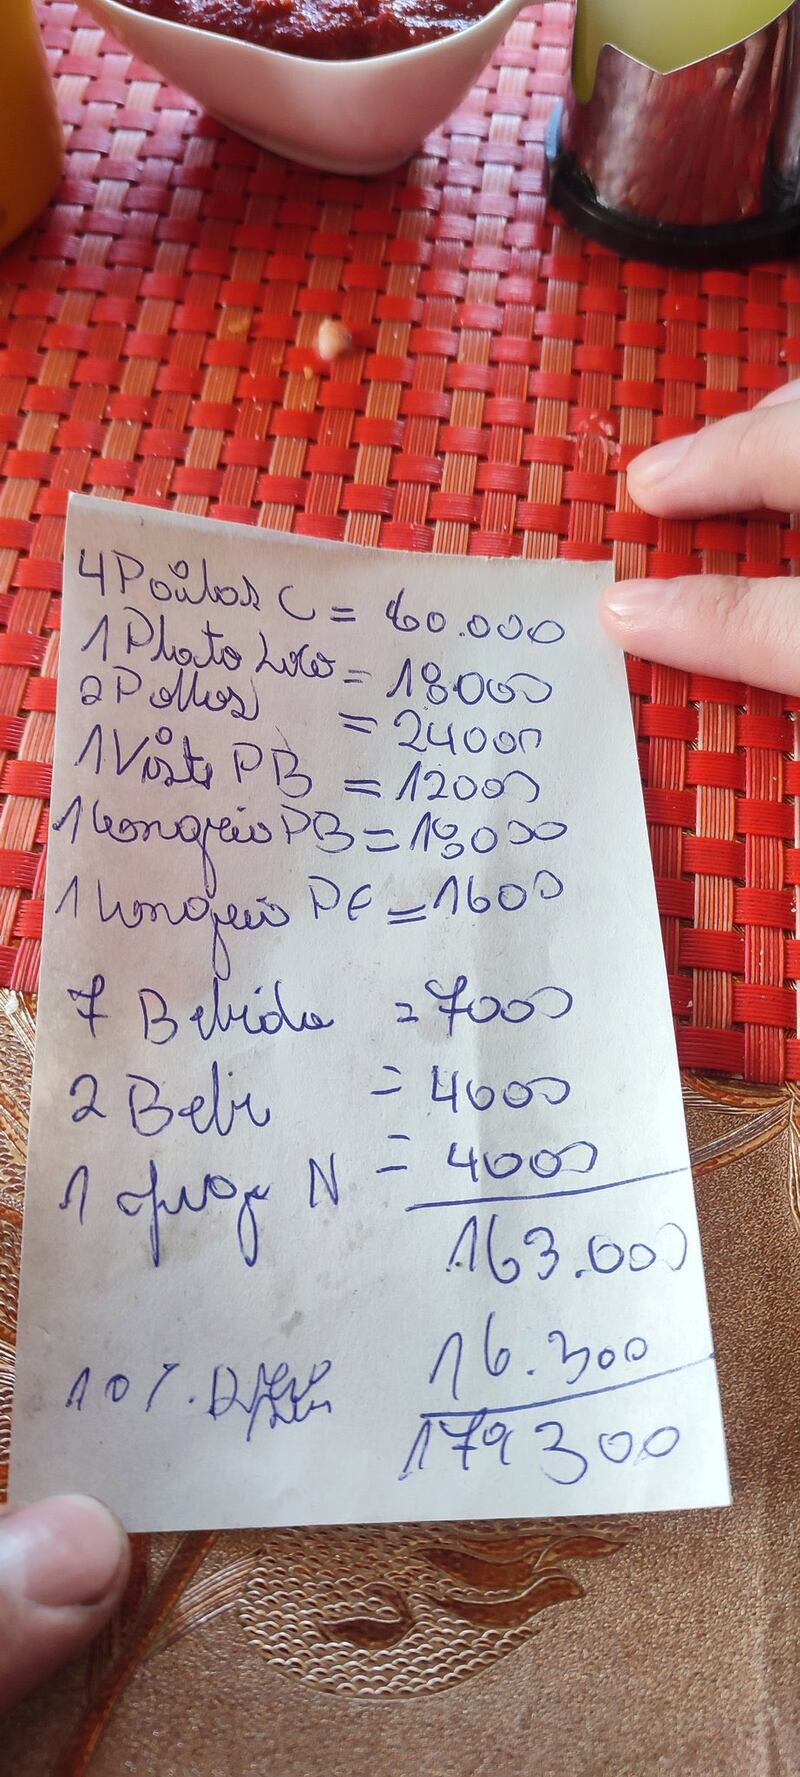 4 Pailas C = 60.000
1 Plato Loco = 18000
2 Pollos = 24000
1 Viste PB = 12000
1 Congrio PB = 18000
1 Congrio PE = 1600
7 Bebida = 7000
2 Bebi = 4000
1 N = 4000
163.000
10%. 16.300
179300